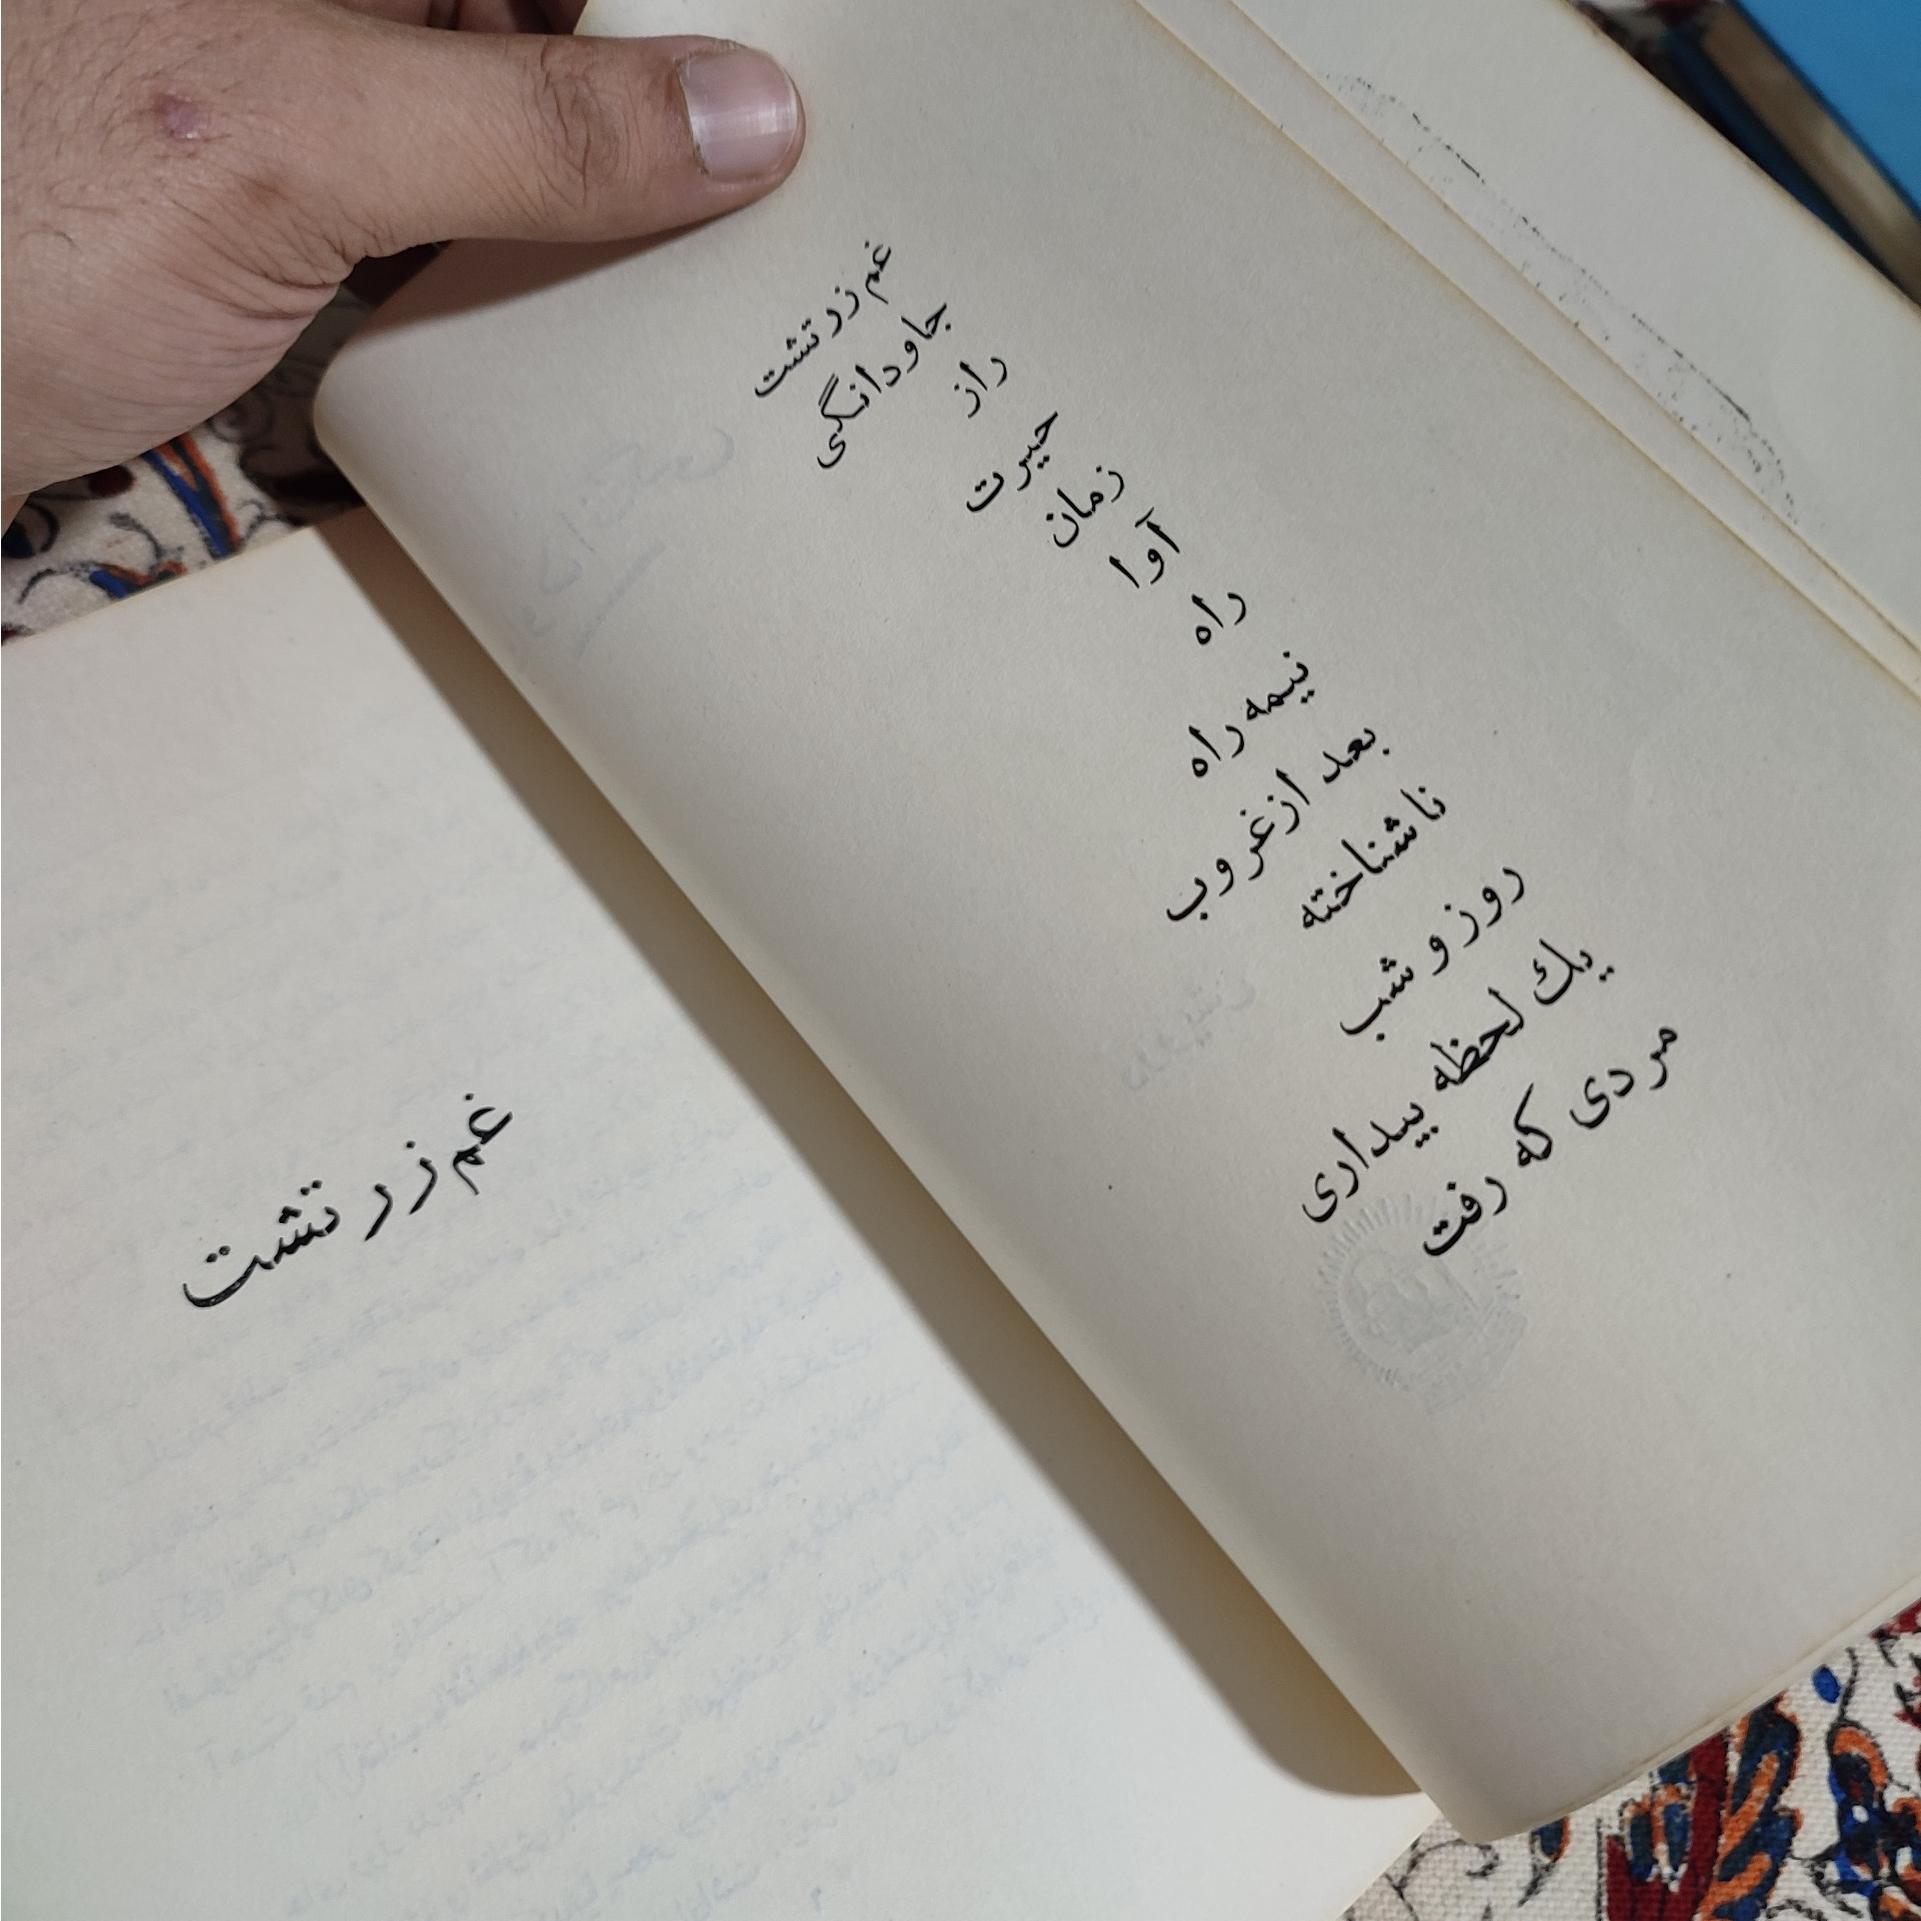 غم زرتشت
جاودانگی
راز
حیرت
زمان
آوا
راه
نیمه راه
بعد از غروب
ناشناخته
روز و شب
یك لحظه بیداری
مردی که رفت
غم زرتشت